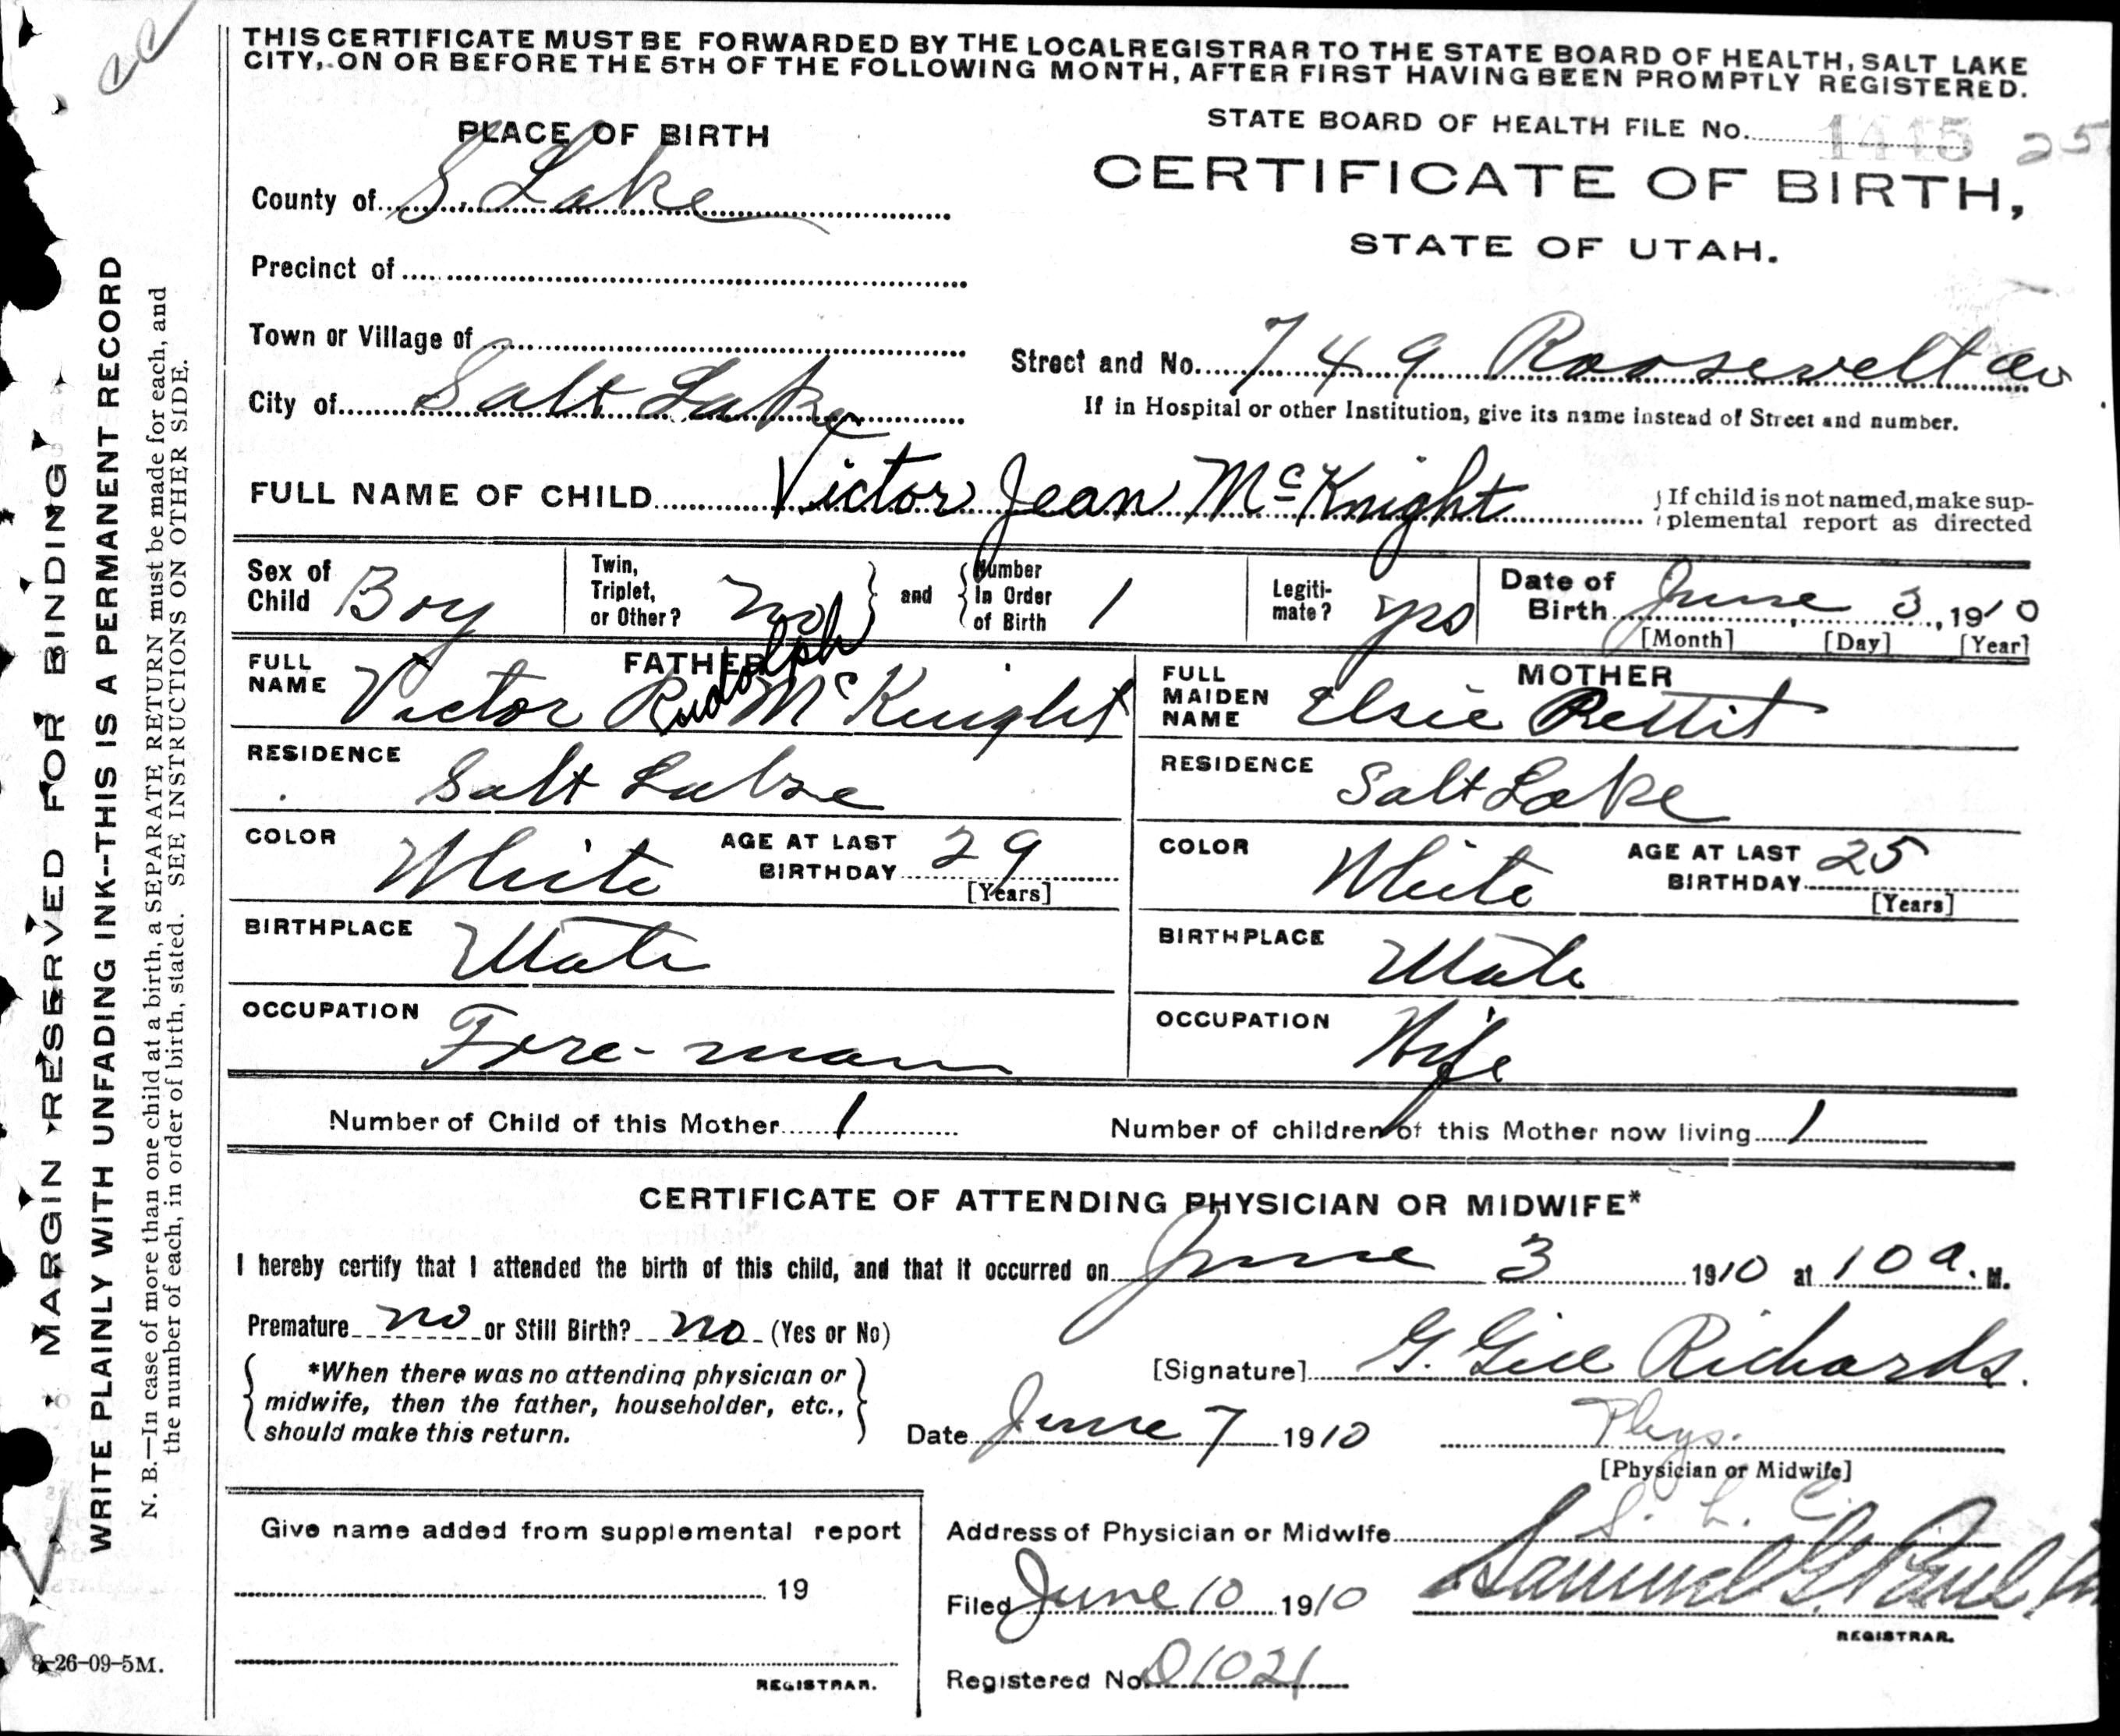 THIS CERTIFICATE MUST BE FORWARDED BY THE LOCAL REGISTRAR TO THE STATE BOARD OF HEALTH, SALT LAKE
CITY, ON OR BEFORE THE 5TH OF THE FOLLOWING MONTH, AFTER FIRST HAVING BEEN PROMPTLY REGISTERED.
STATE BOARD OF HEALTH FILE No. 1445 25
PLACE OF BIRTH
CERTIFICATE OF BIRTH,
STATE OF UTAH.
County of S. Lake
Precinct of
Town or Village of
Street and No. 749 Roosevelt av
City of Salt Lake
If in Hospital or other Institution, give its name instead of Street and number.
FULL NAME OF CHILD Victor Jean McKnight
If child is not named, make sup-
plemental report as directed
Sex of Child Boy
Twin, Triplet, or Other? no and Number In Order of Birth 1
Legiti-mate? yes
Date of Birth June 3, 1910
[Month] [Day] [Year]
FATHER
FULL NAME Victor Rudolph McKnight
MOTHER
FULL MAIDEN NAME Elsie Pettit
RESIDENCE Salt Lake
RESIDENCE Salt Lake
COLOR White AGE AT LAST BIRTHDAY 29 [Years]
COLOR White AGE AT LAST BIRTHDAY 25 [Years]
BIRTHPLACE Utah
BIRTHPLACE Utah
OCCUPATION Fore-man
OCCUPATION Wife
Number of Child of this Mother 1 Number of children of this Mother now living 1
CERTIFICATE OF ATTENDING PHYSICIAN OR MIDWIFE*
I hereby certify that I attended the birth of this child, and that it occurred on June 3 1910 at 10 a. M.
Premature no or Still Birth? no (Yes or No)
*When there was no attending physician or
midwife, then the father, householder, etc.,
should make this return.
[Signature] G. Gill Richards.
Date June 7 1910 Phys.
[Physician or Midwife]
Give name added from supplemental report
19
REGISTRAR.
Address of Physician or Midwife S. L. C.
Filed June 10 1910 Samuel G. Paul
REGISTRAR.
Registered No. 01021
MARGIN RESERVED FOR BINDING
WRITE PLAINLY WITH UNFADING INK--THIS IS A PERMANENT RECORD
N. B.—In case of more than one child at a birth, a SEPARATE RETURN must be made for each, and
the number of each, in order of birth, stated. SEE INSTRUCTIONS ON OTHER SIDE.
8-26-09-5M.